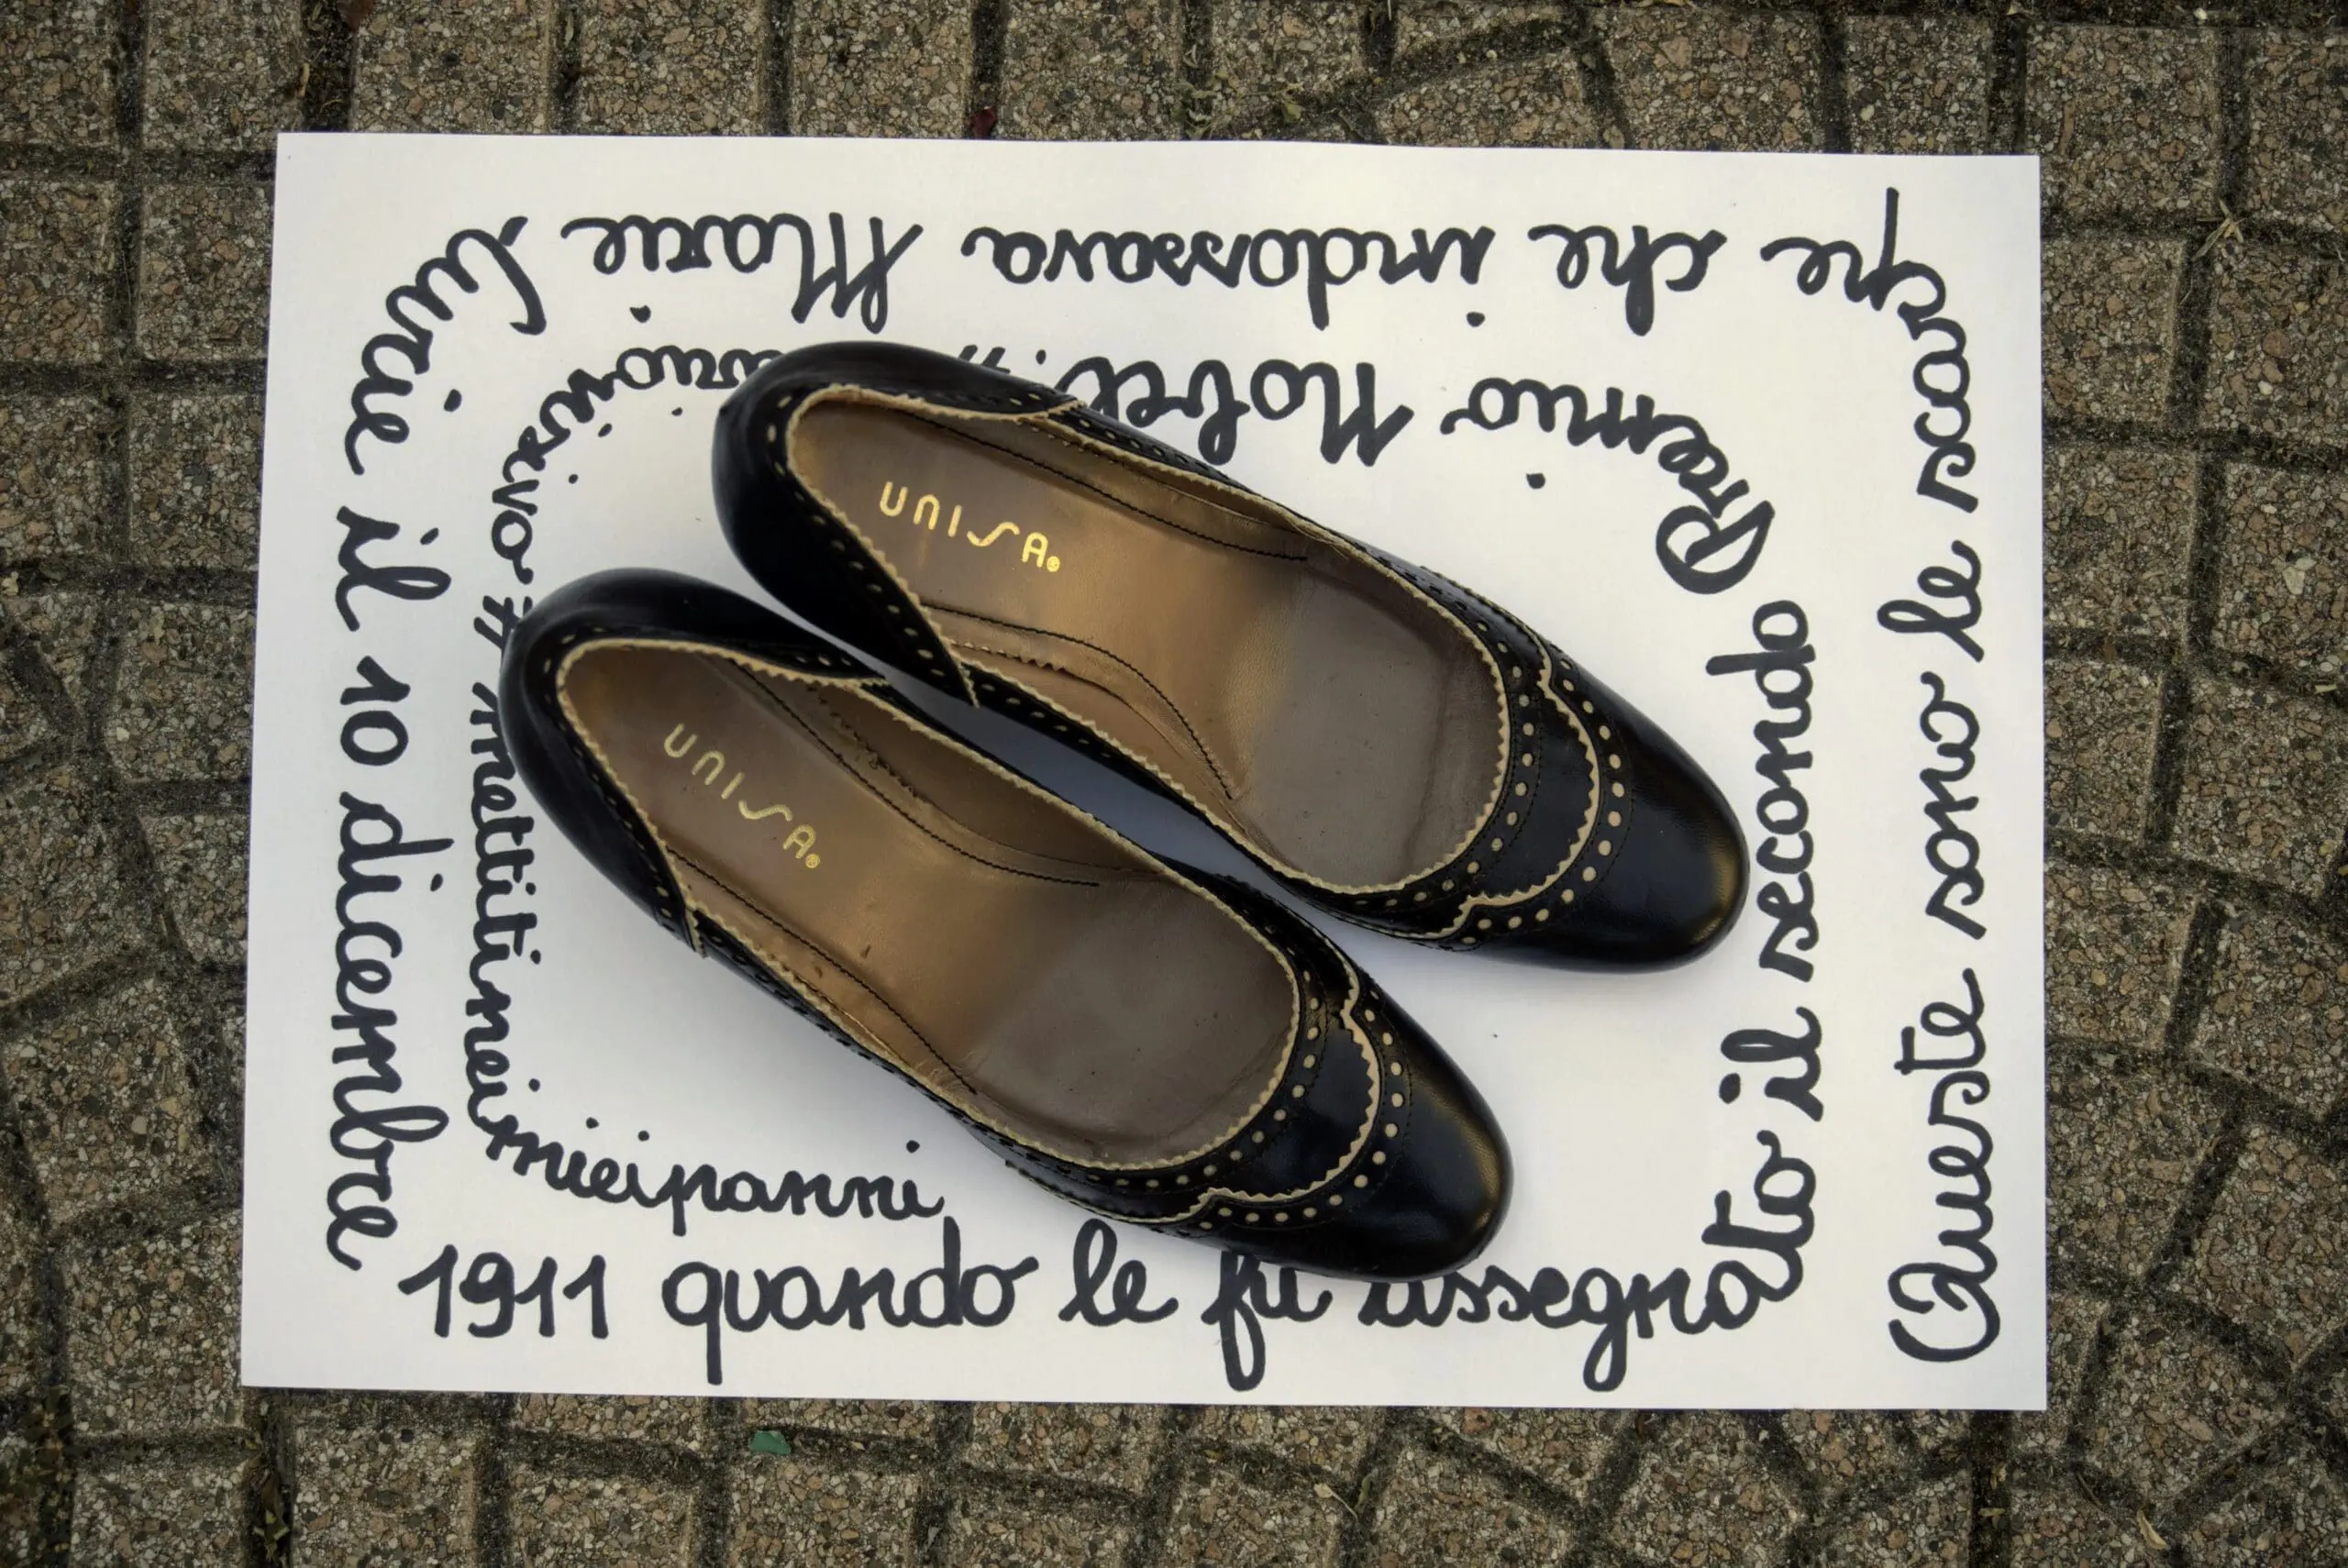 Queste sono le scarpe che indossava Marie Curie il 10 dicembre 1911 quando le fu assegnato il secondo Premio Nobel.
#
#mettitineimieipanni
UNISA®
UNISA®